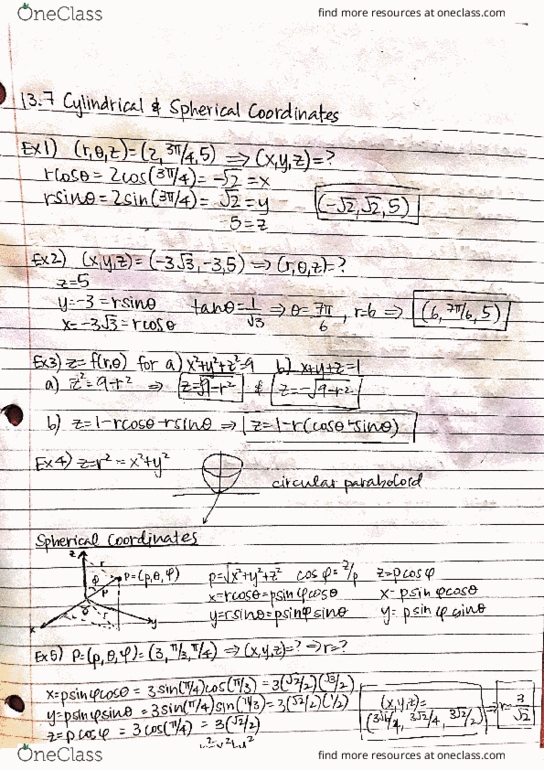 OneClass
find more resources at oneclass.com
13.7 Cylindrical & Spherical Coordinates
Ex1) (r,θ,z)=(2, 3π/4, 5) ⇒ (x,y,z)=?
rcosθ = 2cos(3π/4) = -√2 = x
rsinθ = 2sin(3π/4) = √2 = y
5 = z
(-√2, √2, 5)
Ex2) (x,y,z) = (-3√3, -3, 5) ⇒ (r,θ,z)=?
z=5
y=-3=rsinθ
tanθ = 1/√3 ⇒ θ = 7π/6, r=6 ⇒ (6, 7π/6, 5)
x=-3√3=rcosθ
Ex3) z=f(r,θ) for a) x²+y²+z²=9 b) x+y+z=1
a) z²=9-r² ⇒ z=√9-r² & z=-√9-r²
b) z=1-rcosθ-rsinθ ⇒ z=1-r(cosθ-sinθ)
Ex4) z=r²=x²+y²
circular paraboloid
Spherical Coordinates
z
r
P=(ρ,θ,φ)
φ
ρ
θ
x
y
ρ=√x²+y²+z² cos φ = z/ρ z=ρcosφ
x=rcosθ=ρsinφcosθ x=ρsinφcosθ
y=rsinθ=ρsinφsinθ y=ρsinφsinθ
Ex5) P=(ρ,θ,φ) = (3, π/3, π/4) ⇒ (x,y,z)=? → r=?
x=ρsinφcosθ = 3sin(π/4)cos(π/3) = 3(√2/2)(√3/2)
y=ρsinφsinθ = 3sin(π/4)sin(π/3) = 3(√2/2)(1/2)
z=ρcosφ = 3cos(π/4) = 3(√2/2)
(x,y,z)=
(3√6/4, 3√2/4, 3√2/2)
⇒ r=3/√2
OneClass
find more resources at oneclass.com